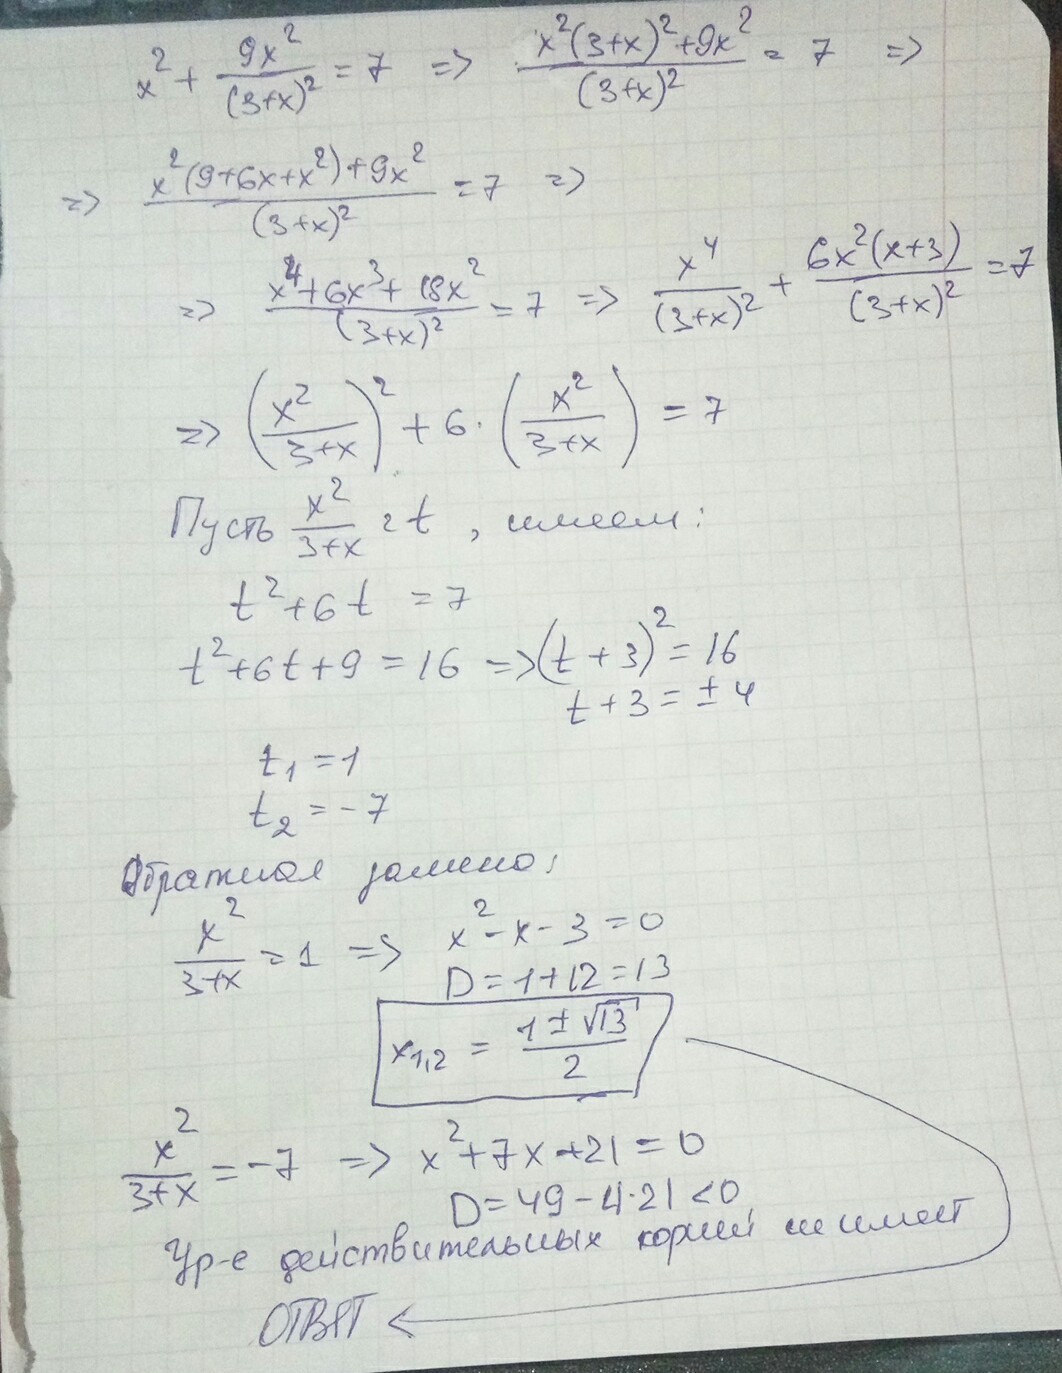 x² + 9x²/(3+x)² = 7 => (x²(3+x)²+9x²)/(3+x)² = 7 =>
=> (x²(9+6x+x²)+9x²)/(3+x)² = 7 =>
=> (x⁴+6x³+18x²)/(3+x)² = 7 => x⁴/(3+x)² + 6x²(x+3)/(3+x)² = 7
=> (x²/(3+x))² + 6·(x²/(3+x)) = 7
Пусть x²/(3+x) = t, имеем:
t²+6t = 7
t²+6t+9 = 16 => (t+3)² = 16
t+3 = ±4
t₁ = 1
t₂ = -7
Обратная замена:
x²/(3+x) = 1 => x²-x-3 = 0
D = 1+12 = 13
x₁,₂ = (1±√13)/2
x²/(3+x) = -7 => x²+7x+21 = 0
D = 49-4·21 < 0
Ур-е действительных корней не имеет
ОТВЕТ <